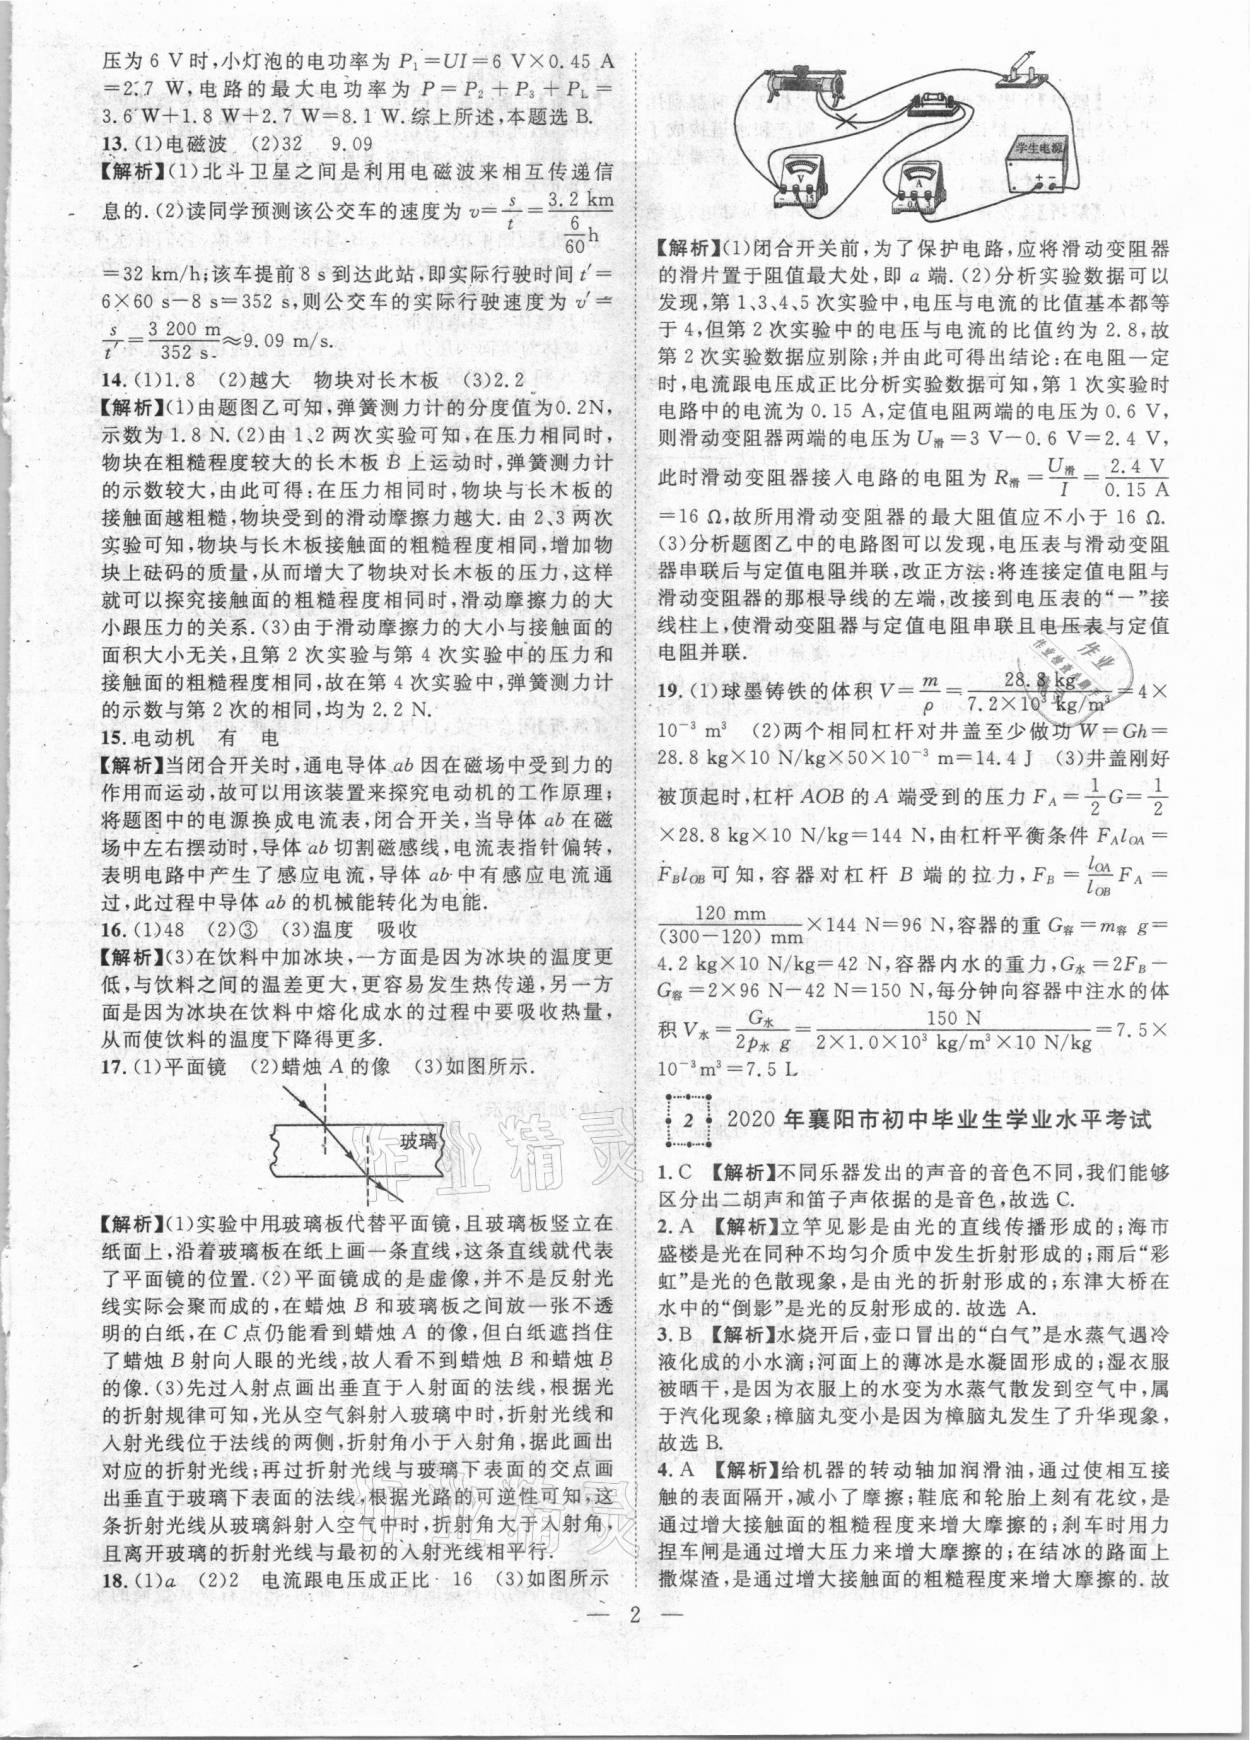 压为 6 V 时,小灯泡的电功率为 P₁=UI=6 V×0.45 A
=2.7 W,电路的最大电功率为 P=P₂+P₃+P_L=
3.6 W+1.8 W+2.7 W=8.1 W.综上所述,本题选 B.
13.(1)电磁波 (2)32 9.09
【解析】(1)北斗卫星之间是利用电磁波来相互传递信
息的.(2)读同学预测该公交车的速度为 v=s/t=3.2 km/(6/60 h)
=32 km/h;该车提前 8 s 到达此站,即实际行驶时间 t′=
6×60 s-8 s=352 s,则公交车的实际行驶速度为 v′=
s/t′=3 200 m/352 s≈9.09 m/s.
14.(1)1.8 (2)越大 物块对长木板 (3)2.2
【解析】(1)由题图乙可知,弹簧测力计的分度值为0.2N,
示数为 1.8 N.(2)由 1、2 两次实验可知,在压力相同时,
物块在粗糙程度较大的长木板 B 上运动时,弹簧测力计
的示数较大,由此可得:在压力相同时,物块与长木板的
接触面越粗糙,物块受到的滑动摩擦力越大.由 2、3 两次
实验可知,物块与长木板接触面的粗糙程度相同,增加物
块上砝码的质量,从而增大了物块对长木板的压力,这样
就可以探究接触面的粗糙程度相同时,滑动摩擦力的大
小跟压力的关系.(3)由于滑动摩擦力的大小与接触面的
面积大小无关,且第 2 次实验与第 4 次实验中的压力和
接触面的粗糙程度相同,故在第 4 次实验中,弹簧测力计
的示数与第 2 次的相同,均为 2.2 N.
15.电动机 有 电
【解析】当闭合开关时,通电导体 ab 因在磁场中受到力的
作用而运动,故可以用该装置来探究电动机的工作原理;
将题图中的电源换成电流表,闭合开关,当导体 ab 在磁
场中左右摆动时,导体 ab 切割磁感线,电流表指针偏转,
表明电路中产生了感应电流,导体 ab 中有感应电流通
过,此过程中导体 ab 的机械能转化为电能.
16.(1)48 (2)③ (3)温度 吸收
【解析】(3)在饮料中加冰块,一方面是因为冰块的温度更
低,与饮料之间的温差更大,更容易发生热传递,另一方
面是因为冰块在饮料中熔化成水的过程中要吸收热量,
从而使饮料的温度下降得更多.
17.(1)平面镜 (2)蜡烛 A 的像 (3)如图所示.
玻璃
【解析】(1)实验中用玻璃板代替平面镜,且玻璃板竖立在
纸面上,沿着玻璃板在纸上画一条直线,这条直线就代表
了平面镜的位置.(2)平面镜成的是虚像,并不是反射光
线实际会聚而成的,在蜡烛 B 和玻璃板之间放一张不透
明的白纸,在 C 点仍能看到蜡烛 A 的像,但白纸遮挡住
了蜡烛 B 射向人眼的光线,故人看不到蜡烛 B 和蜡烛 B
的像.(3)先过入射点画出垂直于入射面的法线,根据光
的折射规律可知,光从空气斜射入玻璃中时,折射光线和
入射光线位于法线的两侧,折射角小于入射角,据此画出
对应的折射光线;再过折射光线与玻璃下表面的交点画
出垂直于玻璃下表面的法线,根据光路的可逆性可知,这
条折射光线从玻璃斜射入空气中时,折射角大于入射角,
且离开玻璃的折射光线与最初的入射光线相平行.
18.(1)a (2)2 电流跟电压成正比 16 (3)如图所示
学生电源
V
A
【解析】(1)闭合开关前,为了保护电路,应将滑动变阻器
的滑片置于阻值最大处,即 a 端.(2)分析实验数据可以
发现,第 1、3、4、5 次实验中,电压与电流的比值基本都等
于 4,但第 2 次实验中的电压与电流的比值约为 2.8,故
第 2 次实验数据应剔除;并由此可得出结论:在电阻一定
时,电流跟电压成正比分析实验数据可知,第 1 次实验时
电路中的电流为 0.15 A,定值电阻两端的电压为 0.6 V,
则滑动变阻器两端的电压为 U滑=3 V-0.6 V=2.4 V,
此时滑动变阻器接入电路的电阻为 R滑=U滑/I=2.4 V/0.15 A
=16 Ω,故所用滑动变阻器的最大阻值应不小于 16 Ω.
(3)分析题图乙中的电路图可以发现,电压表与滑动变阻
器串联后与定值电阻并联,改正方法:将连接定值电阻与
滑动变阻器的那根导线的左端,改接到电压表的“-”接
线柱上,使滑动变阻器与定值电阻串联且电压表与定值
电阻并联.
19.(1)球墨铸铁的体积 V=m/ρ=28.8 kg/(7.2×10³ kg/m³)=4×
10⁻³ m³ (2)两个相同杠杆对井盖至少做功 W=Gh=
28.8 kg×10 N/kg×50×10⁻³ m=14.4 J (3)井盖刚好
被顶起时,杠杆 AOB 的 A 端受到的压力 F_A=1/2 G=1/2
×28.8 kg×10 N/kg=144 N,由杠杆平衡条件 F_A l_OA=
F_B l_OB 可知,容器对杠杆 B 端的拉力,F_B=l_OA/l_OB F_A=
120 mm/(300-120) mm×144 N=96 N,容器的重 G容=m容 g=
4.2 kg×10 N/kg=42 N,容器内水的重力,G水=2F_B-
G容=2×96 N-42 N=150 N,每分钟向容器中注水的体
积 V水=G水/2ρ水 g=150 N/(2×1.0×10³ kg/m³×10 N/kg)=7.5×
10⁻³m³=7.5 L
2 2020 年襄阳市初中毕业生学业水平考试
1.C 【解析】不同乐器发出的声音的音色不同,我们能够
区分出二胡声和笛子声依据的是音色,故选 C.
2.A 【解析】立竿见影是由光的直线传播形成的;海市
盛楼是光在同种不均匀介质中发生折射形成的;雨后“彩
虹”是光的色散现象,是由光的折射形成的;东津大桥在
水中的“倒影”是光的反射形成的.故选 A.
3.B 【解析】水烧开后,壶口冒出的“白气”是水蒸气遇冷
液化成的小水滴;河面上的薄冰是水凝固形成的;湿衣服
被晒干,是因为衣服上的水变为水蒸气散发到空气中,属
于汽化现象;樟脑丸变小是因为樟脑丸发生了升华现象,
故选 B.
4.A 【解析】给机器的转动轴加润滑油,通过使相互接
触的表面隔开,减小了摩擦;鞋底和轮胎上刻有花纹,是
通过增大接触面的粗糙程度来增大摩擦的;刹车时用力
捏车闸是通过增大压力来增大摩擦的;在结冰的路面上
撒煤渣,是通过增大接触面的粗糙程度来增大摩擦的.故
— 2 —
作业精灵
作业精灵